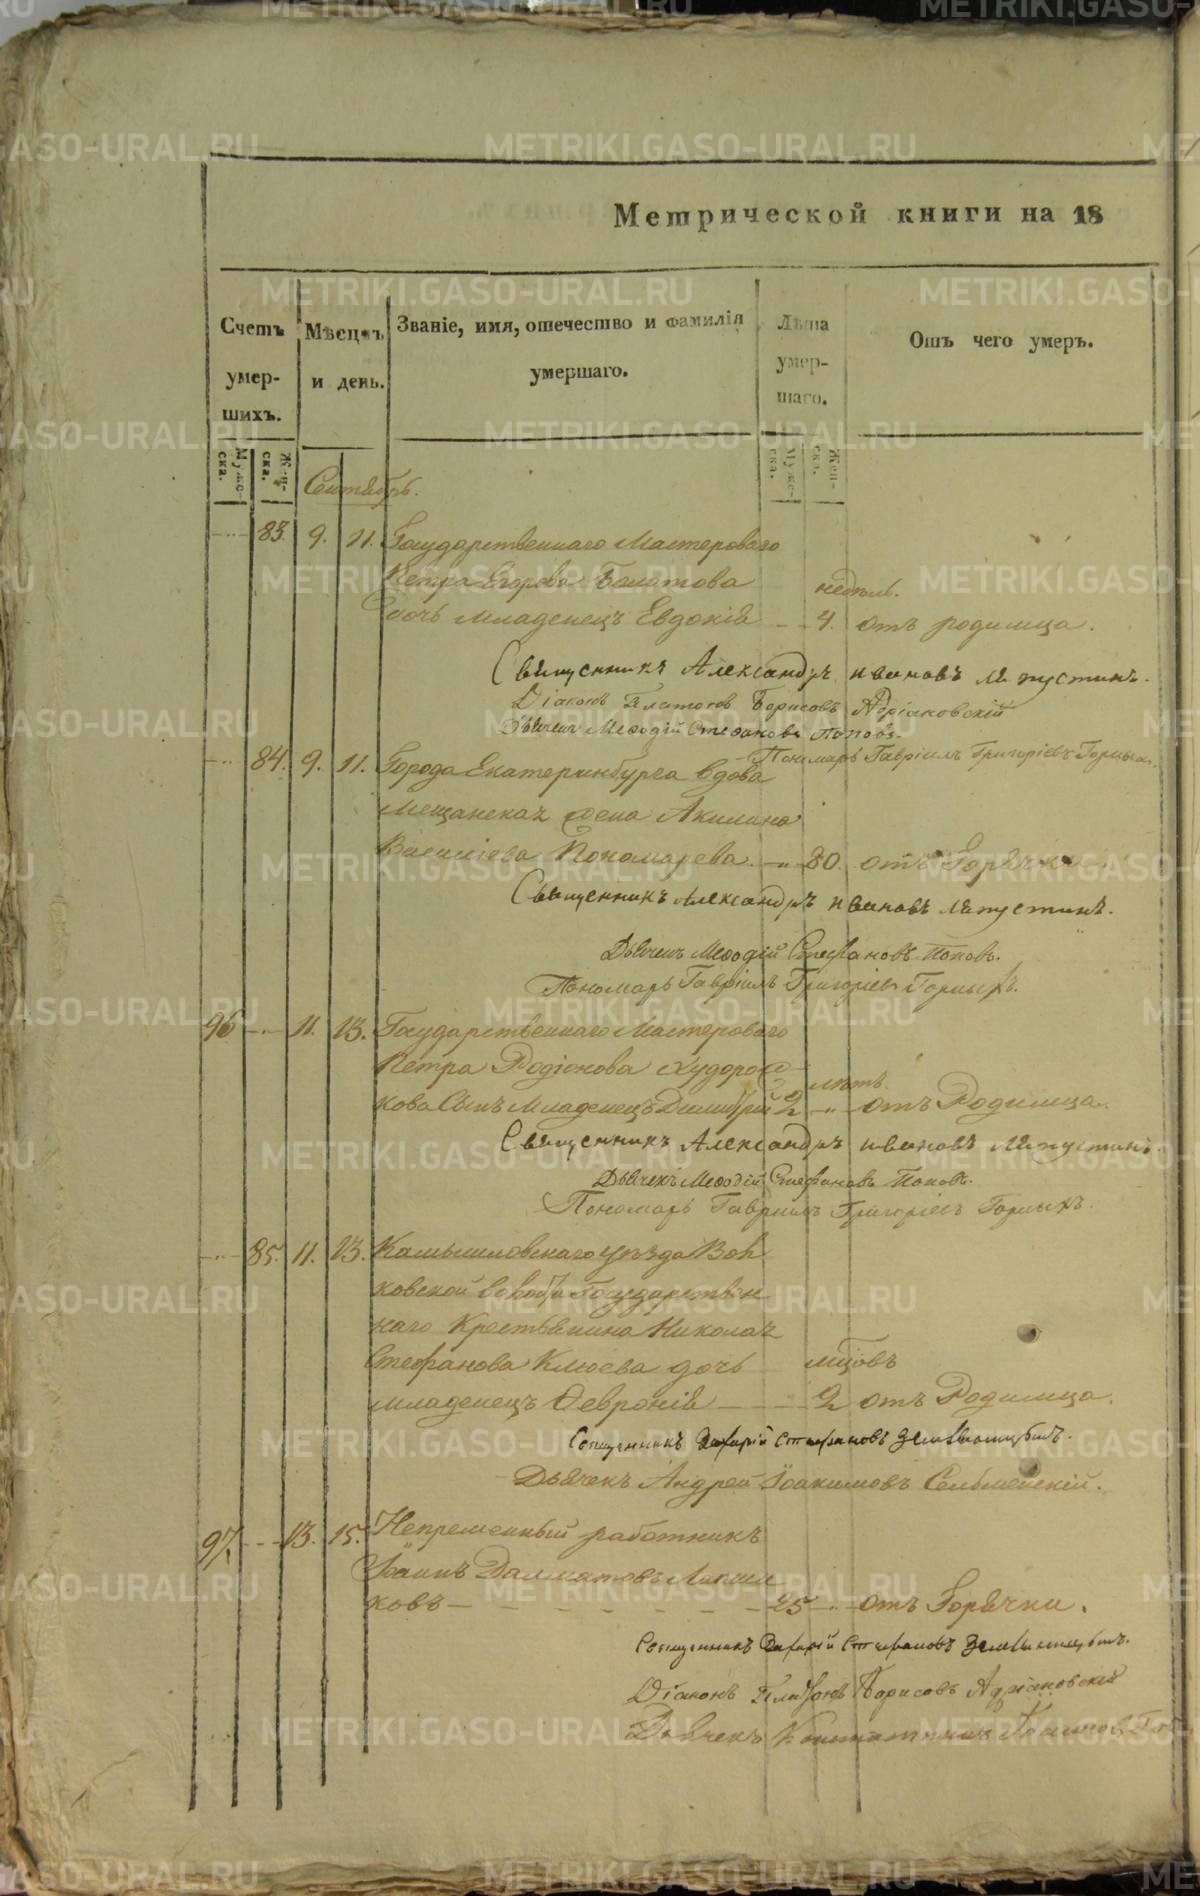 Метрической книги на 18
Счетъ умер-шихъ.
Мужс-ска.
Жен-ска.
Мѣсяцъ и день.
Званіе, имя, отечество и фамилія умершаго.
Лѣта умер-шаго.
Мужс-ска.
Жен-ска.
Отъ чего умеръ.
Сентябрь.
83. 9. 11. Государственнаго Мастероваго
Петра Егорова Болотова недѣль.
дочь младенецъ Евдокія 4. отъ родимца.
Священникъ Александръ Ивановъ Ляпустинъ.
Діаконъ Платонъ Борисовъ Адріановскій
Дьячекъ Меѳодій Стефановъ Поповъ.
Пономарь Гавріилъ Григоріевъ Горныхъ.
84. 9. 11. Города Екатеринбурга вдова
Мещанская жена Акилина
Василіева Пономарева 80. отъ Горячки
Священникъ Александръ Ивановъ Ляпустинъ.
Дьячекъ Меѳодій Стефановъ Поповъ.
Пономарь Гавріилъ Григоріевъ Горныхъ.
96 11. 13. Государственнаго Мастероваго
Петра Родіонова Худоро-
кова Сынъ Младенецъ Димитрій 2 лѣтъ. отъ Родимца.
Священникъ Александръ Ивановъ Ляпустинъ.
Дьячекъ Меѳодій Стефановъ Поповъ.
Пономарь Гавріилъ Григоріевъ Горныхъ.
85. 11. 13. Камышловскаго уѣзда
Государствен-
наго Крестьянина Николая
Стефанова Клюева дочь мцовъ
младенецъ Ѳевронія 2 отъ Родимца.
Священникъ Стефановъ
Дьячекъ Андрей Іоакимовъ
97. 13. 15. Непременный работникъ
Іоаннъ Далматовъ
ковъ 25 отъ Горячки.
Священникъ Стефановъ
Діаконъ Платонъ Борисовъ Адріановскій
Дьячекъ Константинъ